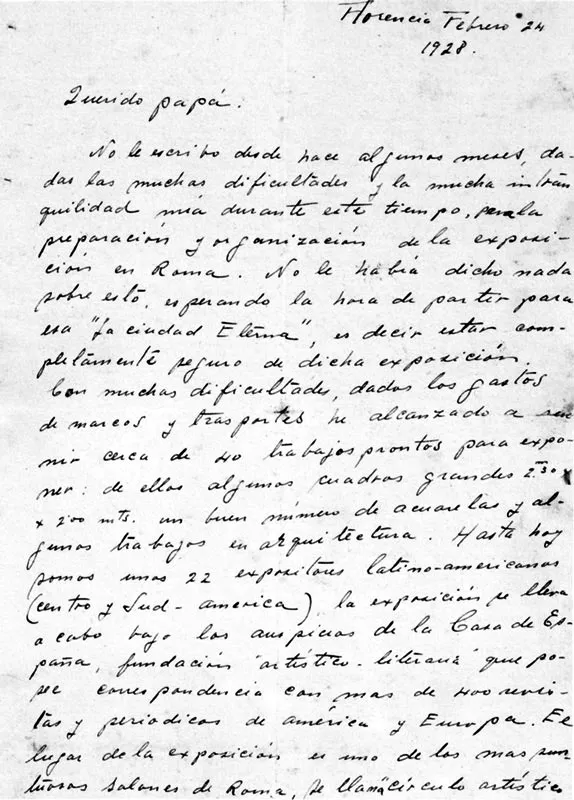 Florencia Febrero 24
1928.
Querido papá.
No le escribo desde hace algunos meses, da-
das las muchas dificultades y la mucha intran
quilidad mia durante este tiempo, para la
preparación y organización de la exposi-
ción en Roma. No le había dicho nada
sobre esto, esperando la hora de partir para
esa "La ciudad Eterna", es decir estar com-
pletamente seguro de dicha exposición.
Con muchas dificultades, dados los gastos
de marcos y trasportes he alcanzado a reu
nir cerca de 40 trabajos prontos para expo
ner: de ellos algunos cuadros grandes 2.50 x
x 2.00 mts. un buen número de acuarelas y al-
gunos trabajos en arquitectura. Hasta hoy
somos unos 22 expositores latino-americanos
(centro y Sud-america), la exposición se lleva
a cabo bajo los auspicios de la Casa de Es-
paña, fundación artístico-literaria que po-
see correspondencia con mas de 400 revis-
tas y periodicos de américa y Europa. El
lugar de la exposición es uno de los mas sun-
tuosos salones de Roma, se llama "círculo artístico